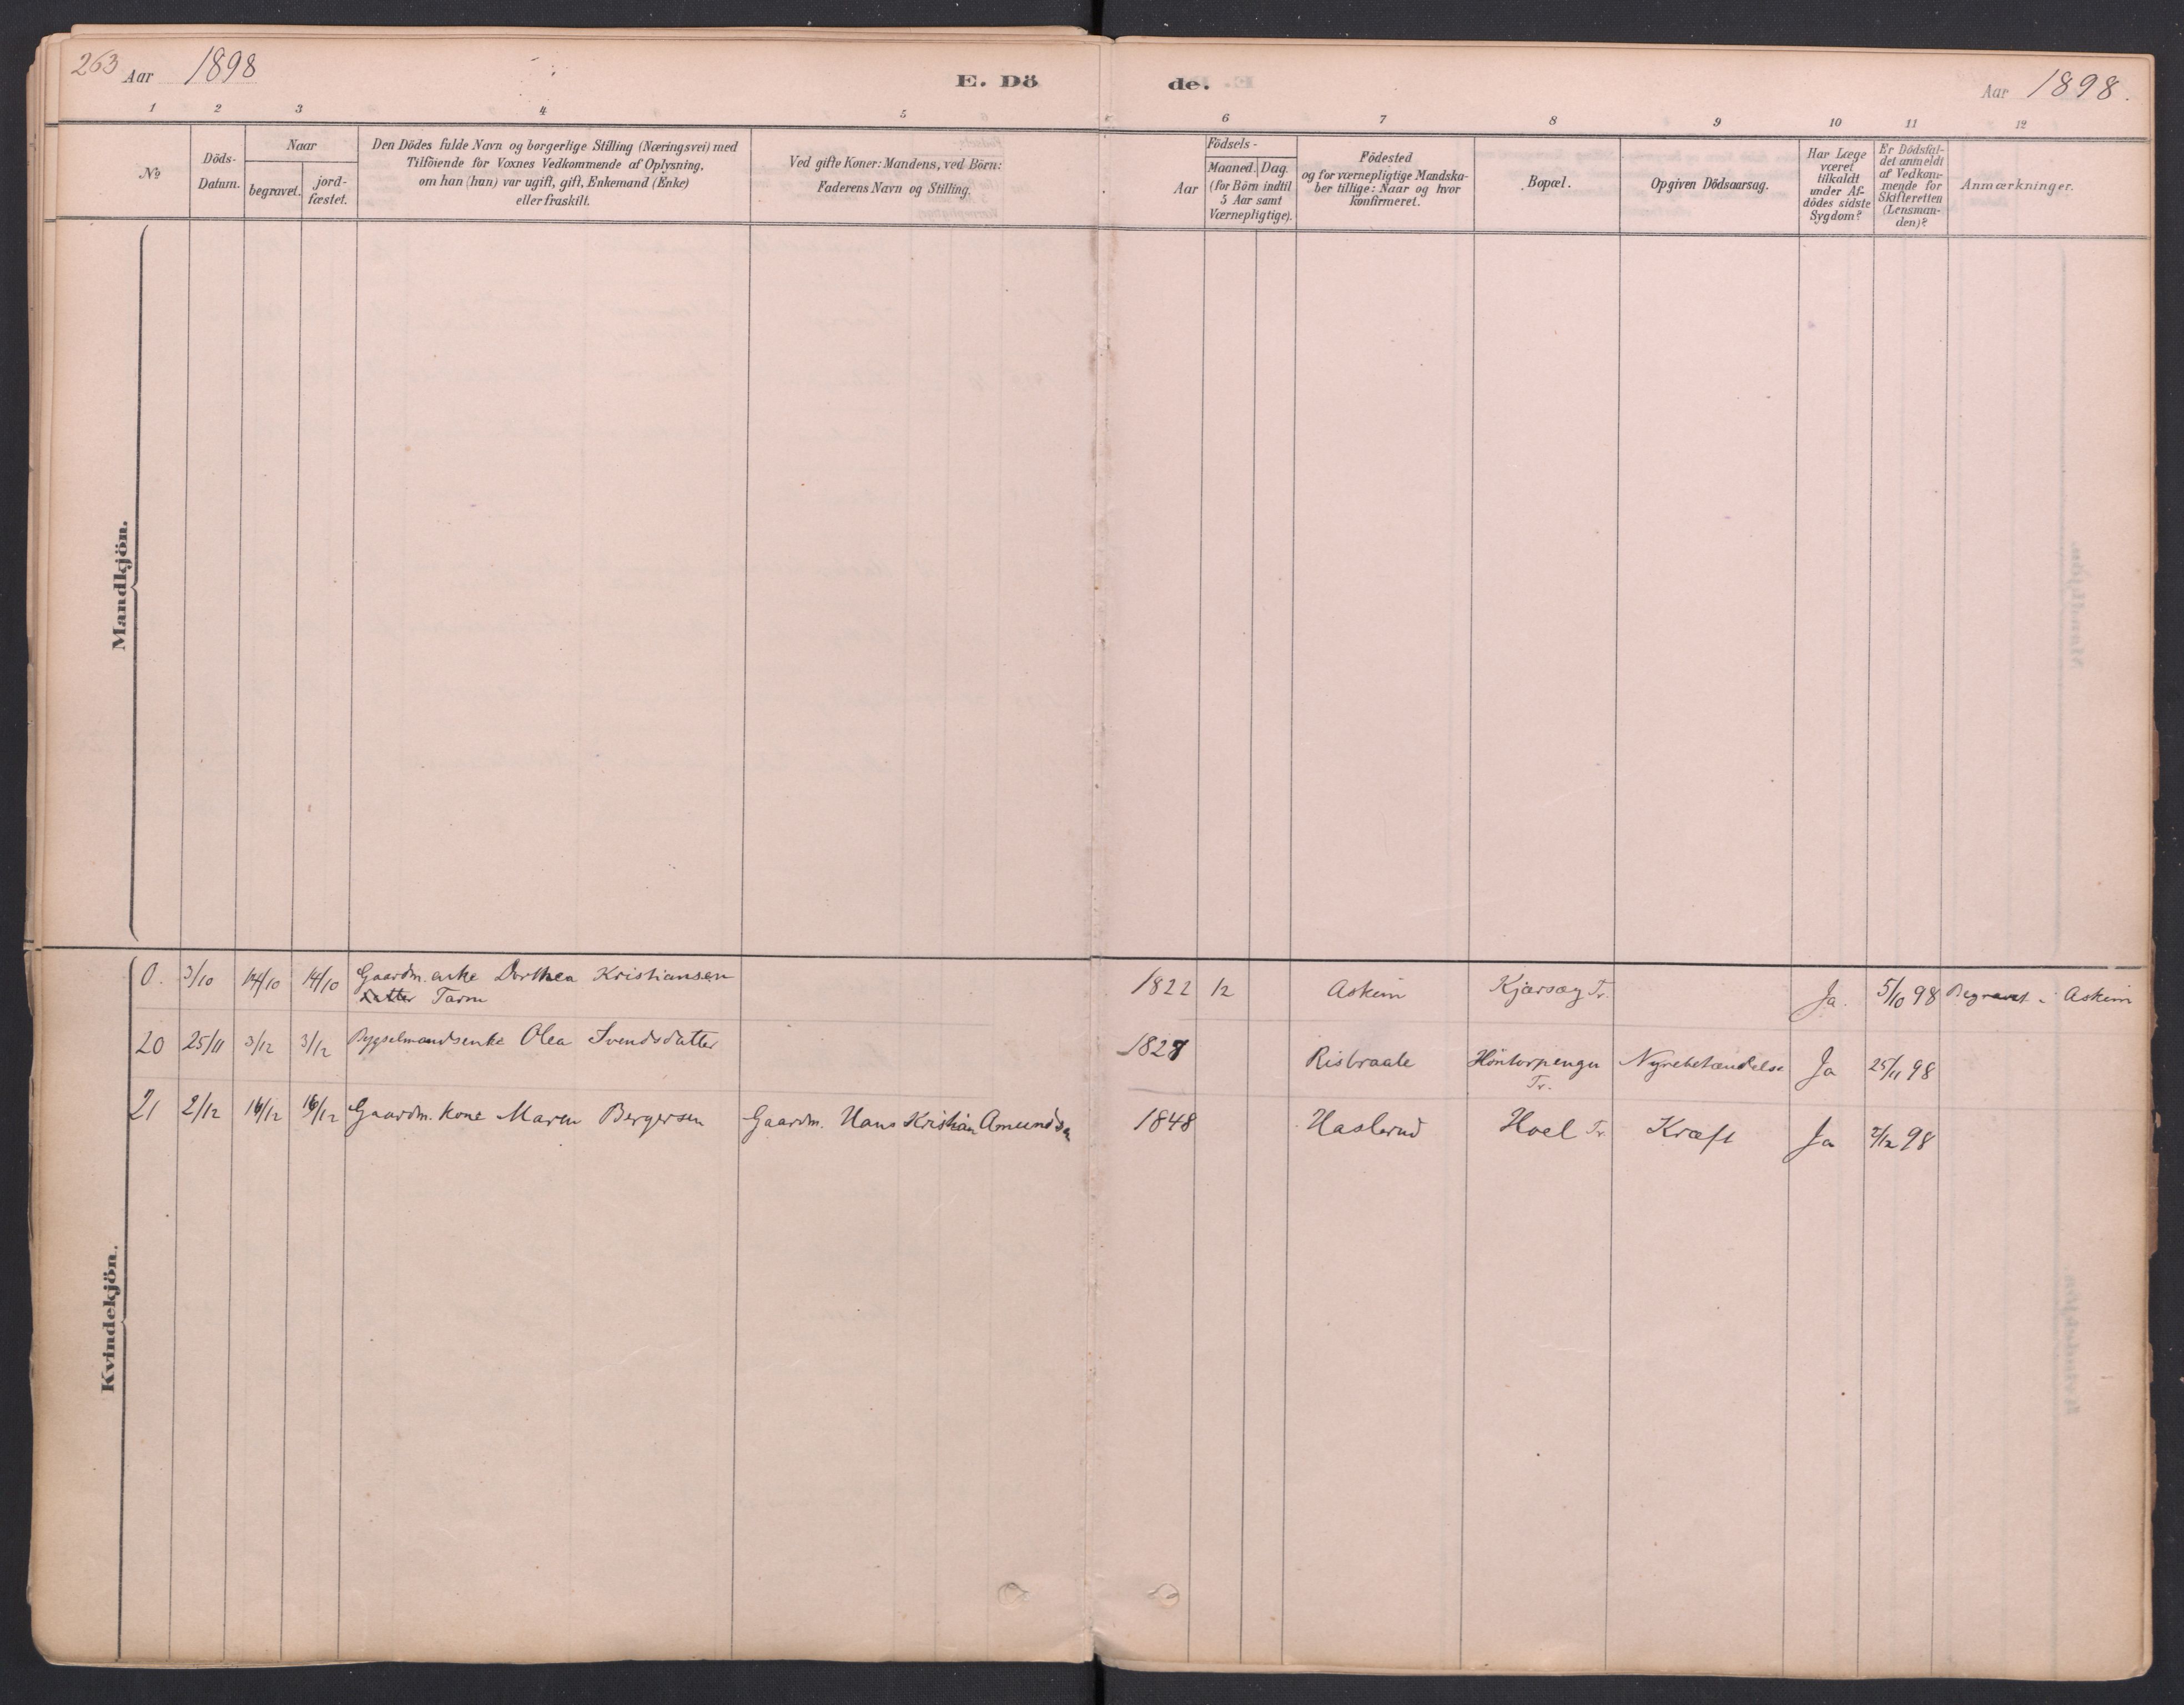 263 Aar 1898 E. Dö de. Aar 1898.
1 2 3 4 5 6 7 8 9 10 11 12
No
Döds-
Datum.
Naar
begravet. jord-
fæstet.
Den Dödes fulde Navn og borgerlige Stilling (Næringsvei) med
Tilföiende for Voxnes Vedkommende af Oplysning,
om han (hun) var ugift, gift, Enkemand (Enke)
eller fraskilt.
Ved gifte Koner: Mandens, ved Börn:
Faderens Navn og Stilling.
Födsels-
Aar Maaned. Dag.
(for Börn indtil
5 Aar samt
Værnepligtige).
Födested
og for værnepligtige Mandska-
ber tillige: Naar og hvor
konfirmeret.
Bopæl.
Opgiven Dödsaarsag.
Har Læge
været
tilkaldt
under Af-
dödes sidste
Sygdom?
Er Dödsfal-
det anmeldt
af Vedkom-
mende for
Skifteretten
(Lensman-
den)?
Anmærkninger.
Mandkjön.
Kvindekjön.
0. 3/10 14/10 14/10 Gaardm. enke Dorthea Kristiansen 1822 12 Askim Kjærsæg Tr. Ja. 5/10 98 Begravet i Askim
datter Tarm
20 25/11 3/12 3/12 Bygselmandsenke Olea Svendsdatter 1828 Risbraate Höntorpengen Nyrebetændelse Ja 25/11 98
Tr.
21 2/12 16/12 16/12 Gaardm. kone Maren Bergersen Gaardm. Hans Kristian Amundsen 1848 Haslerud Hoel Tr. Kræft Ja 5/12 98